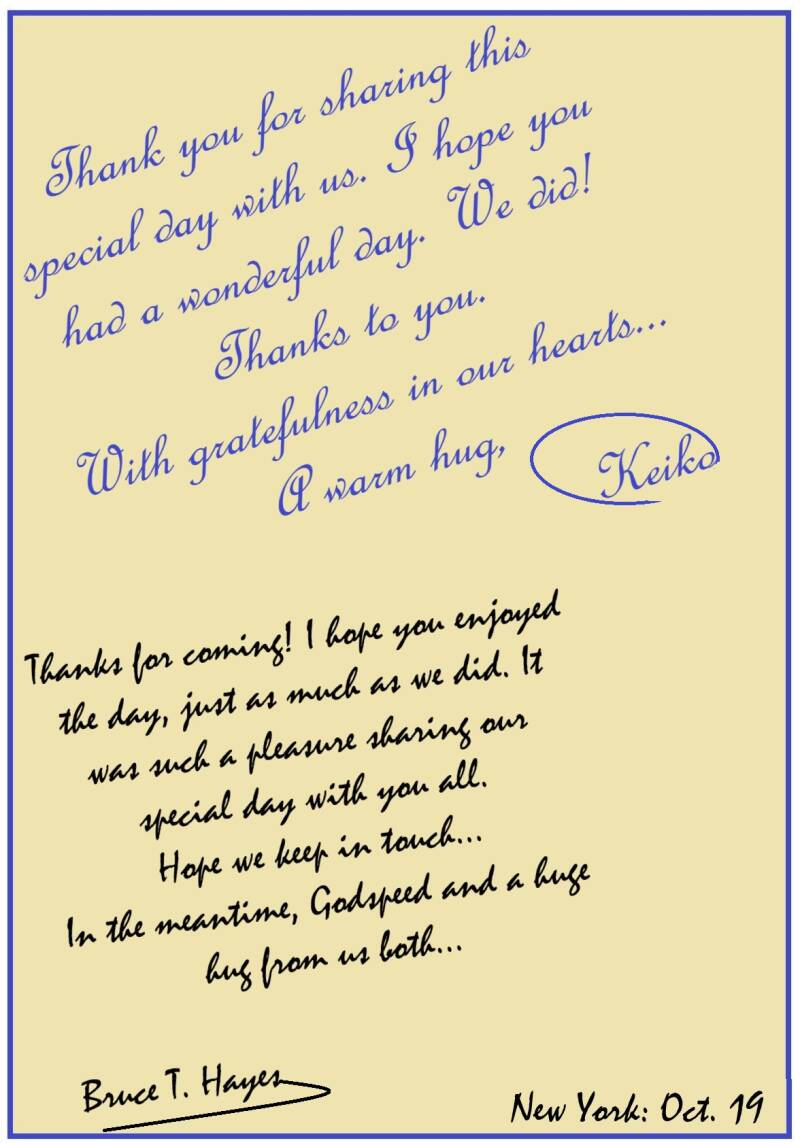 Thank you for sharing this
special day with us. I hope you
had a wonderful day. We did!
Thanks to you.
With gratefulness in our hearts...
A warm hug,
Keiko
Thanks for coming! I hope you enjoyed
the day, just as much as we did. It
was such a pleasure sharing our
special day with you all.
Hope we keep in touch...
In the meantime, Godspeed and a huge
hug from us both...
Bruce T. Hayes
New York: Oct. 19